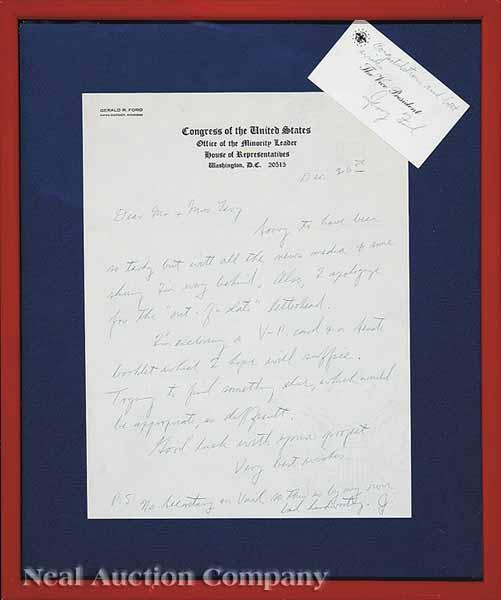 Congratulations and Good
wishes
The Vice President
Jerry Ford
GERALD R. FORD
Congress of the United States
Office of the Minority Leader
House of Representatives
Washington, D.C. 20515
Dec. 26th
Dear Mr. + Mrs.
Sorry to have been
so tardy but with all the news media + some
skiing I'm way behind. Also, I apologize
for the "out-of-date" letterhead.
I'm enclosing a V-P. card + a Senate
booklet which I hope will suffice.
Trying to find something else, which would
be appropriate, is difficult.
Good luck with your project
Very best wishes
P.S. No Secretary in Vail so this is by my own
bad handwriting. J
Neal Auction Company